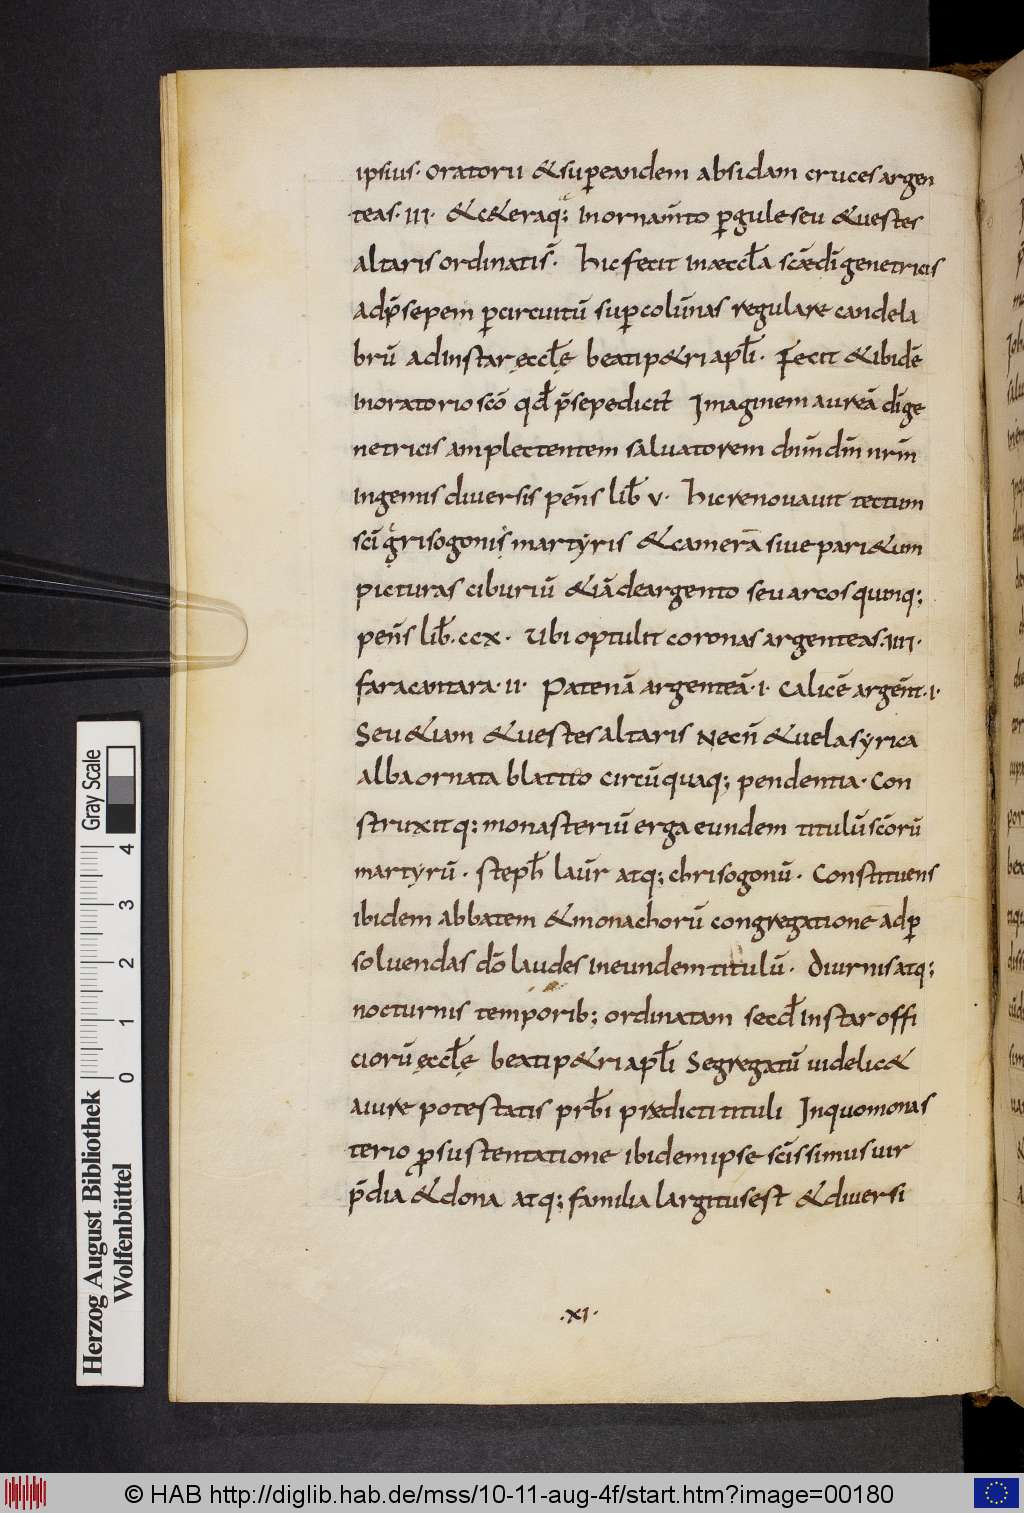 ipsius· oratorii &sup̄eandem absidam cruces argen
teas·III· &c&eraq; Inornam̄to p̄guleseu &uestes
altaris ordinatis̄· hicfecit inæccl̄a scǣdī genetricis
adp̄sepem p̄circuitū sup̄colūnas regulare candela
brū adinstar ęccl̄ę beatip&ri apl̄i· Fecit &ibidē
Inoratorio scō qd̄ p̄sepedicit̄ Imaginem aureā dīge
netricis amplectentem saluatorem dn̄m dm̄ nr̄m
Ingemis diuersis pen̄s lib̄ v· hicrenouauit tectum
scī grisogonis martyris &camerā siue pari&um
picturas ciburiū &iādeargento seu arcos quinq;
pen̄s lib̄·ccx· Ubi optulit coronas argenteas·IIII·
faracantara·II· Patenā argenteā·I· Calicē argēnt·I·
Seu&iam &uestesaltaris Necn̄ &uelasyrica
albaornata blattio circūquaq; pendentia· Con
struxitq; monasteriū erga eundem titulū scōrū
martyrū· steph̄ laūr atq; chrisogonū· Constituens
ibidem abbatem &monachorū congregatione adp̄
soluendas dō laudes ineundemtitulū· diurnisatq;
nocturnis temporib; ordinatam secd̄ Instar offi
ciorū ęccl̄ę beatip&ri apl̄i Segregatū uidelic&
aiure potestatis prb̄i prædicti tituli Inquomonas
terio p̄sustentatione ibidemipse scīssimusuir
p̄dia &dona atq; familia largitusest &diuersi
·XI·
Gray Scale
4
3
2
1
0
Herzog August Bibliothek
Wolfenbüttel
© HAB http://diglib.hab.de/mss/10-11-aug-4f/start.htm?image=00180